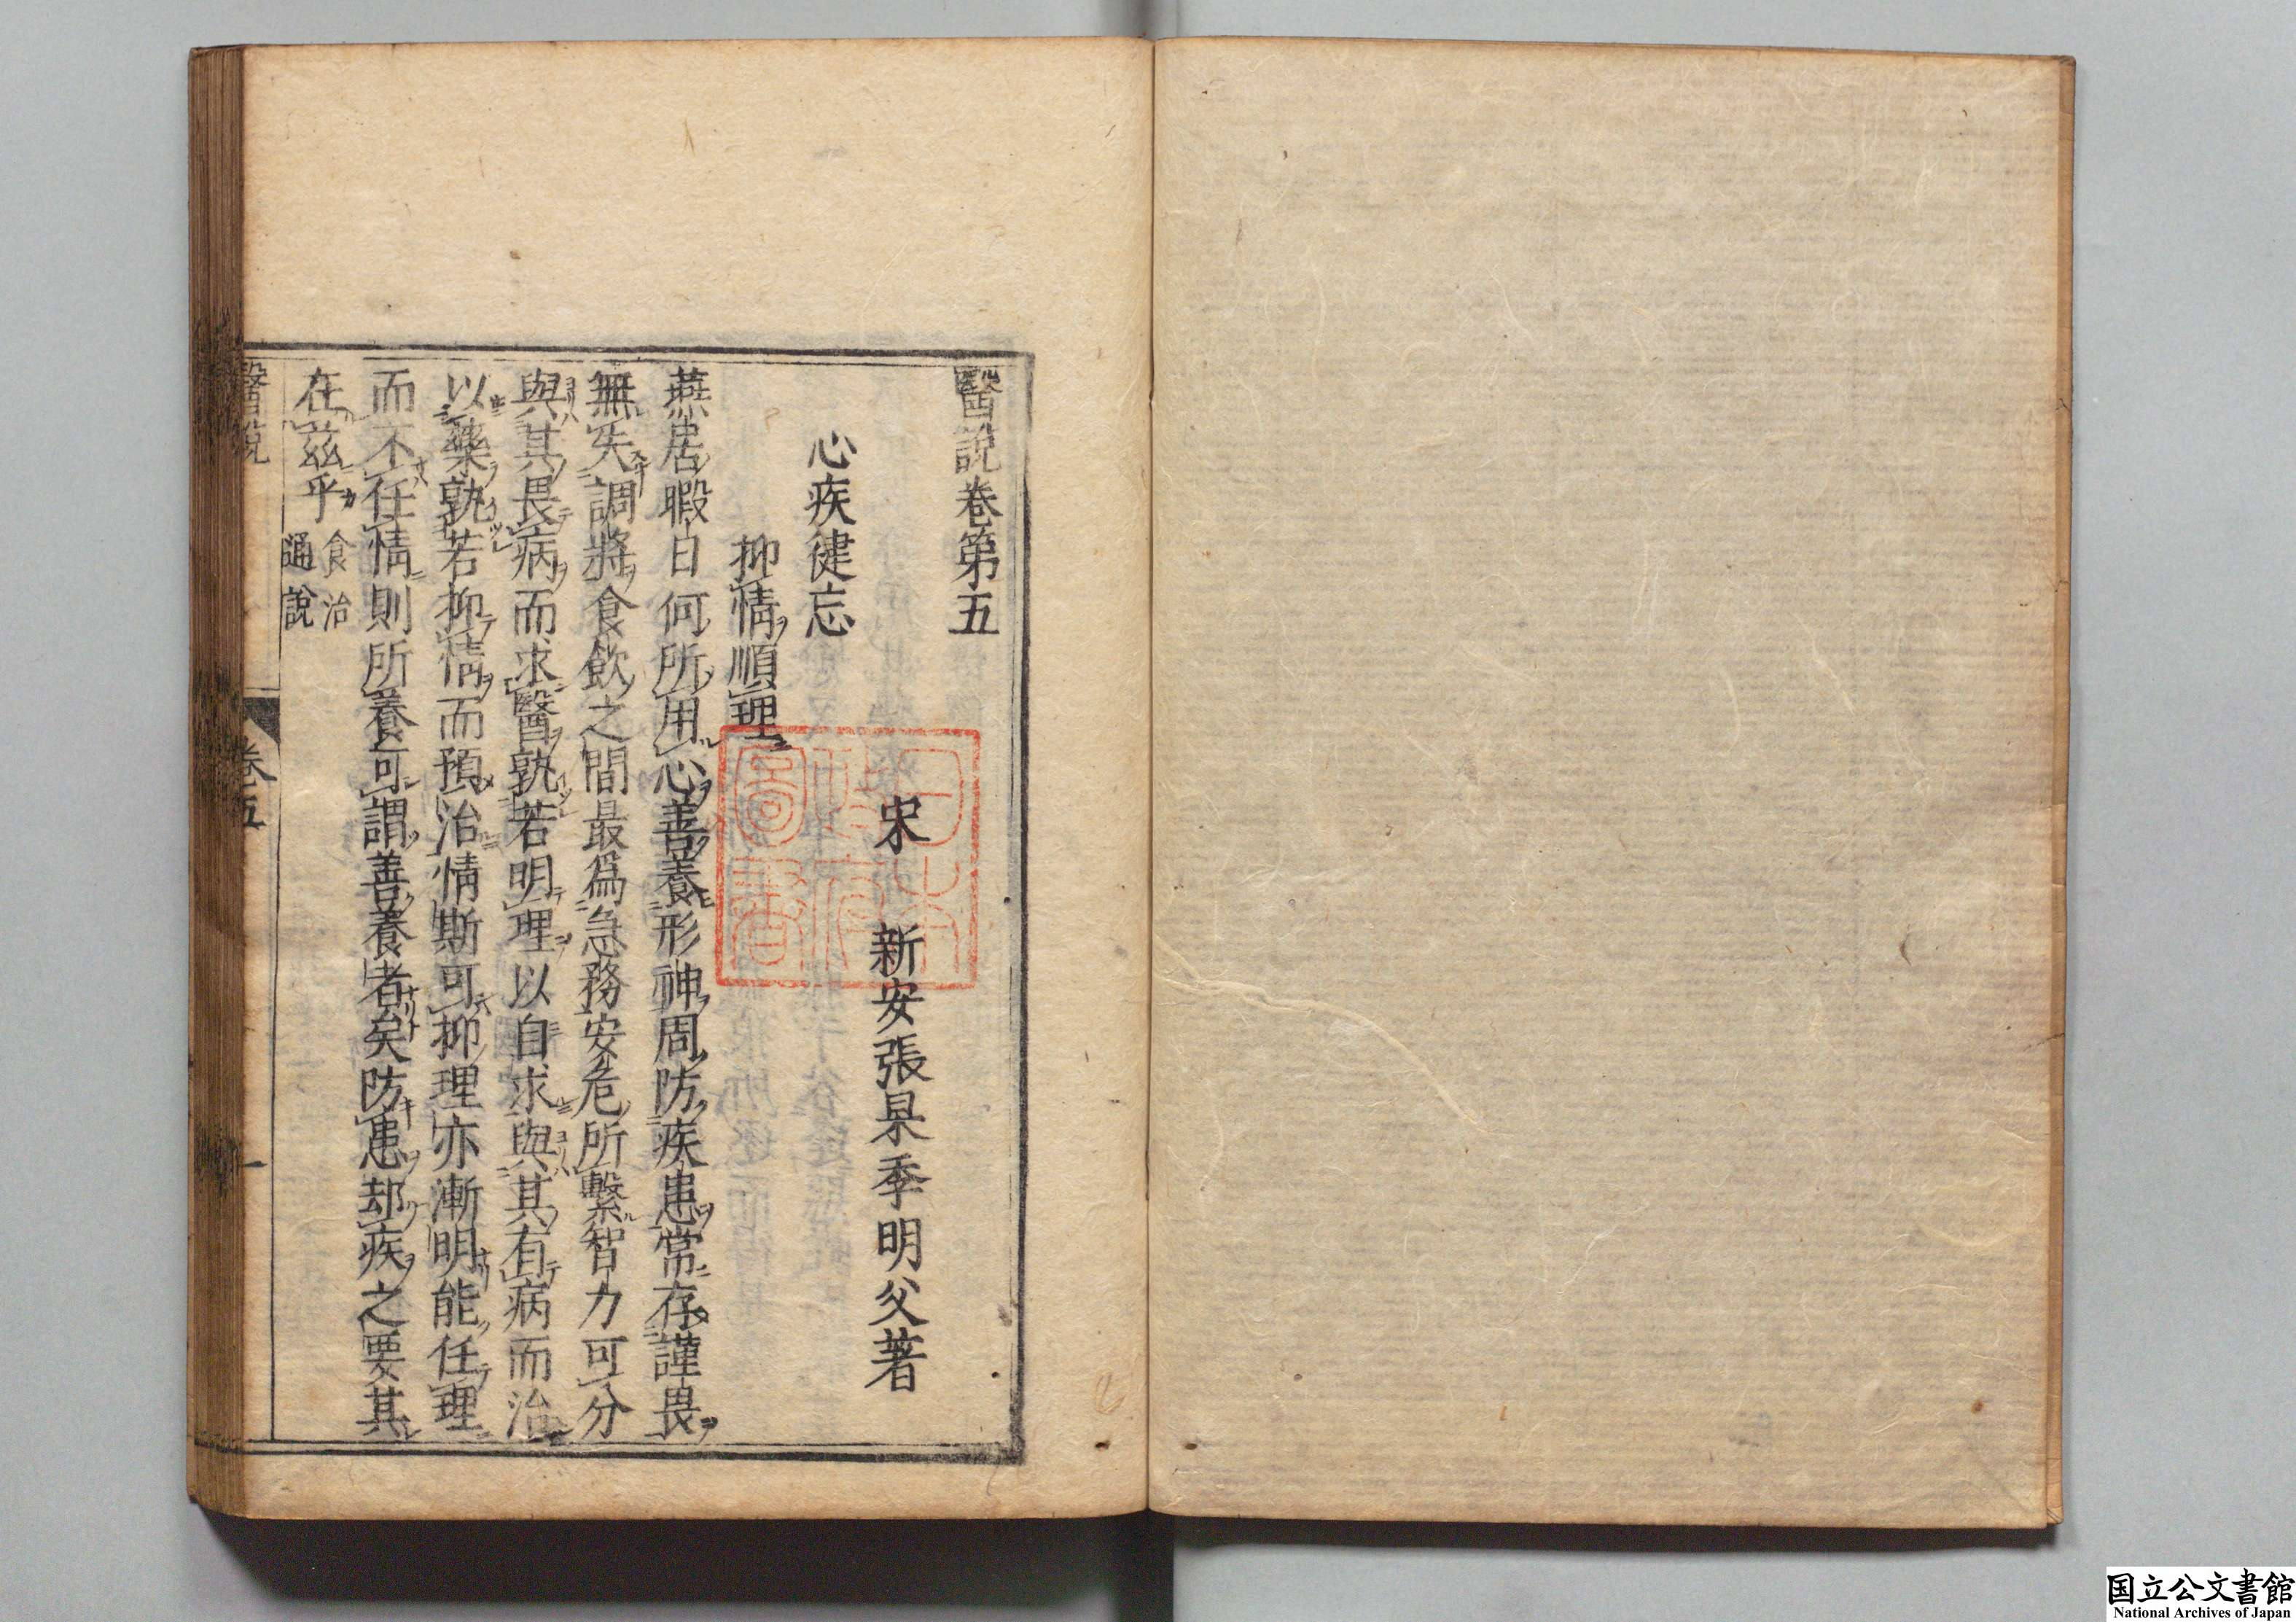 醫說卷第五
宋 新安張杲季明父著
心疾健忘
抑情順理
燕居暇日何所用心善養形神周防疾患常存謹畏
無失調將食飲之間最爲急務安危所繫智力可分
與其畏病而求醫孰若明理以自求與其有病而治
以藥孰若抑情而預治情斯可抑理亦漸明能任理
而不任情則所養可謂善養者矣防患却疾之要其
在茲乎 食治通說
醫說 卷五 一
日本政府圖書
国立公文書館
National Archives of Japan